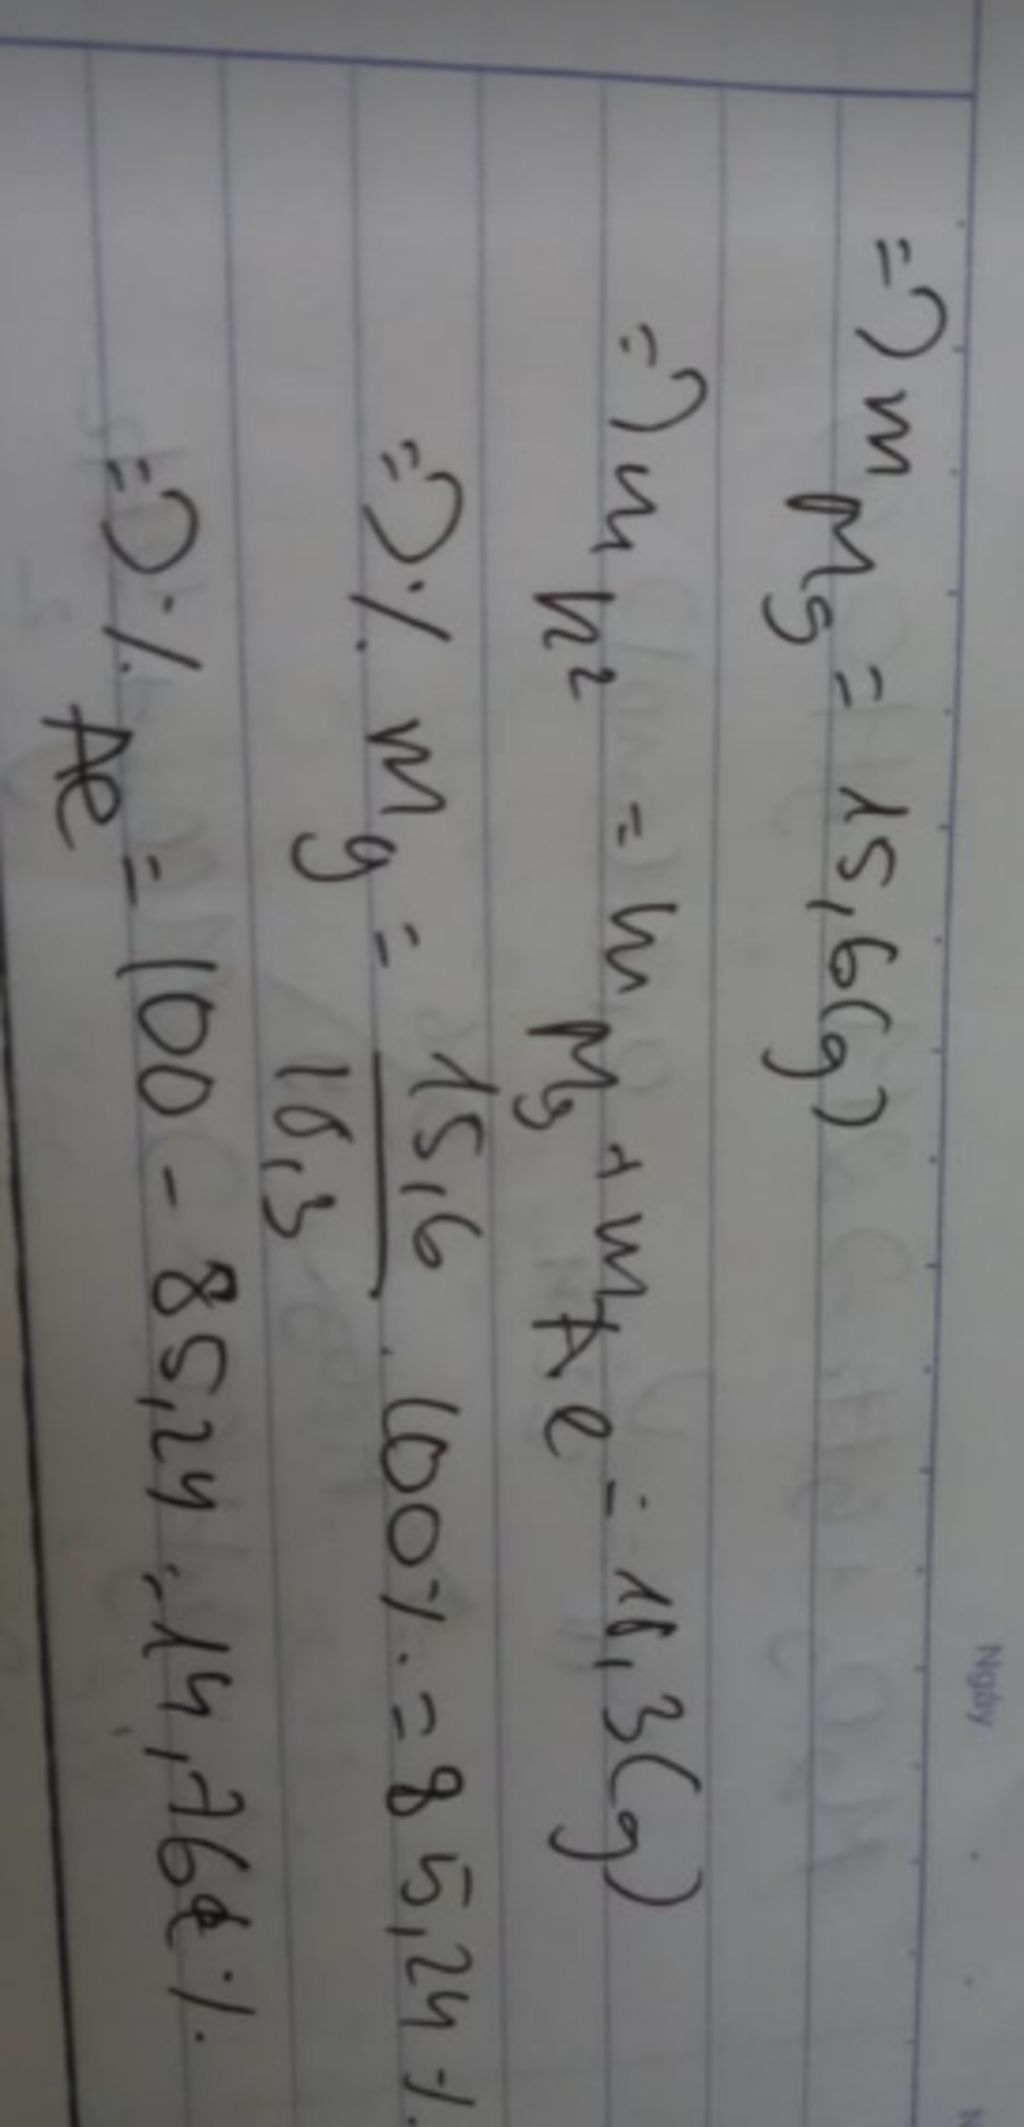 Ngày
=> mMg = 15,6(g)
=> mh2 = mMg + mAl = 18,3(g)
=> % Mg = 15,6 / 18,3 . 100% = 85,24%
=> % Al = 100 - 85,24 = 14,76%